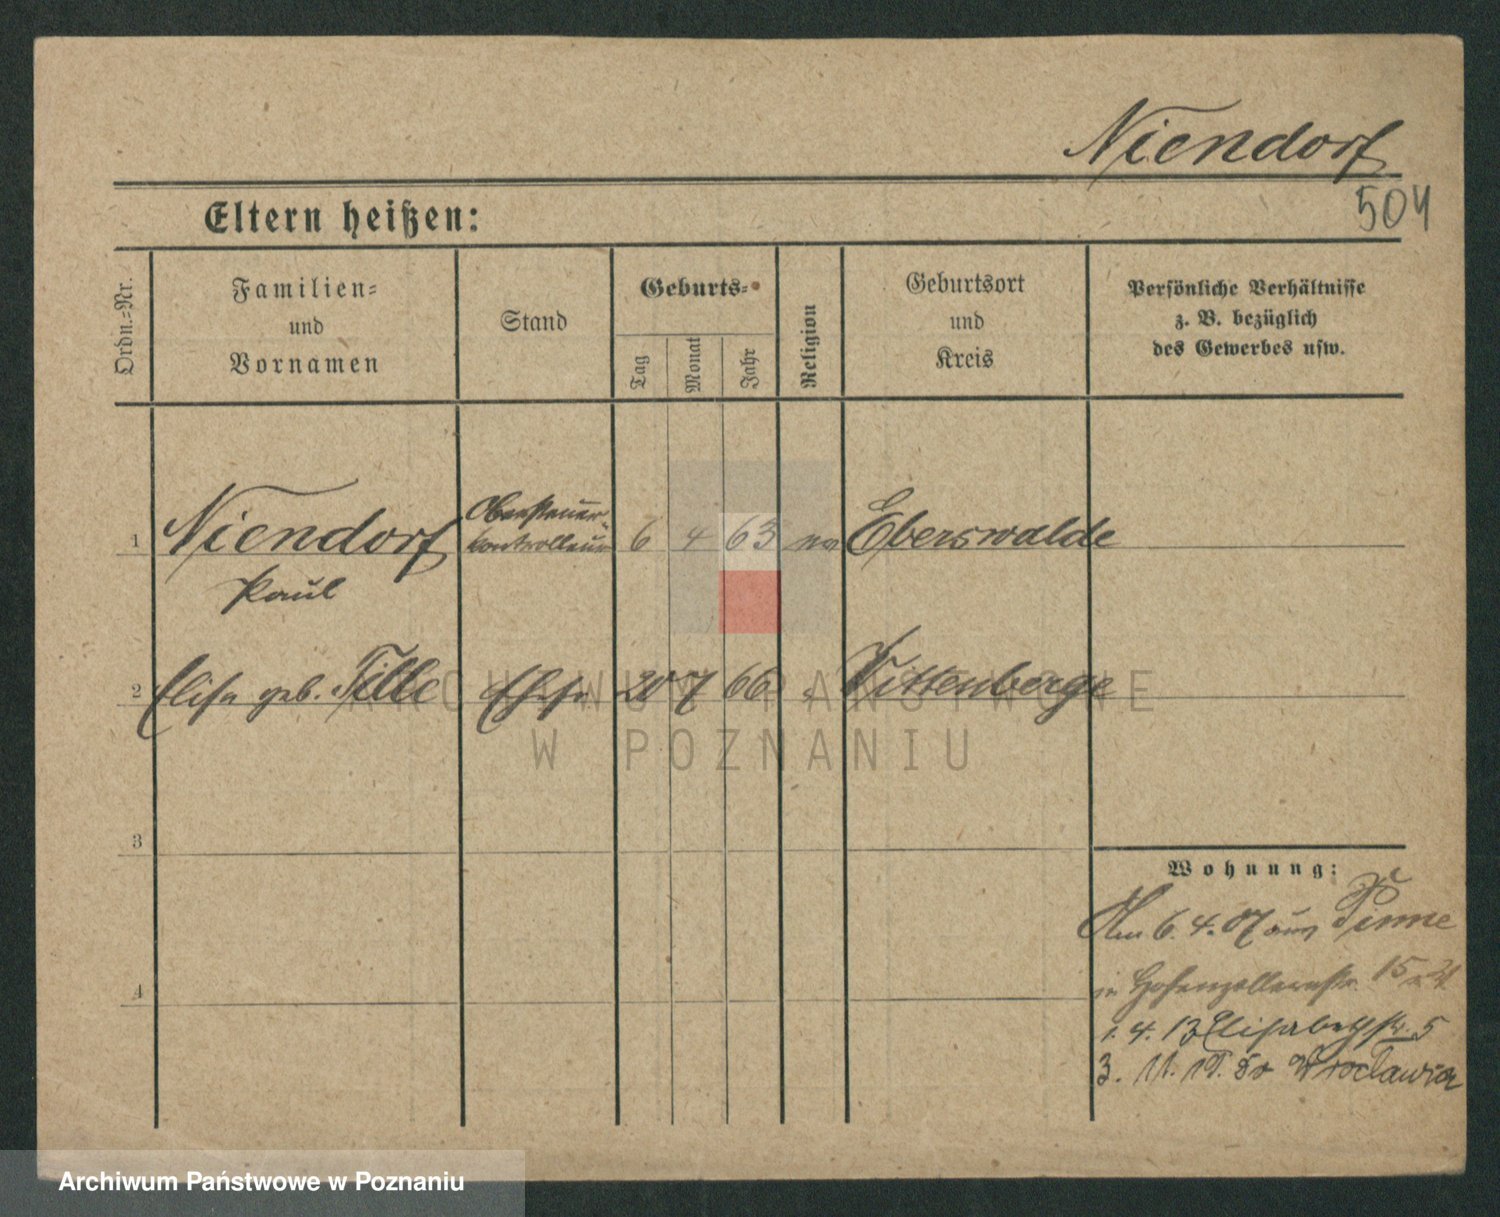 Niendorf
504
Eltern heißen:
Ordn.-Nr.
Familien-
und
Vornamen
Stand
Geburts-
Tag
Monat
Jahr
Religion
Geburtsort
und
Kreis
Persönliche Verhältnisse
z. B. bezüglich
des Gewerbes usw.
1 Niendorf Obersteuer-
kontrolleur 6 4 63 ev Eberswalde
Paul
2 Elise geb. Tille Ehefr 20 7 66 Wittenberge
ARCHIWUM PAŃSTWOWE
W POZNANIU
3
Wohnung:
Am 6. 4. 07 aus Pinne
in Hohenzollernstr. 15
4
1. 4. 13 Elisabethstr. 5
3. 11. 19. do Wrocławia
Archiwum Państwowe w Poznaniu